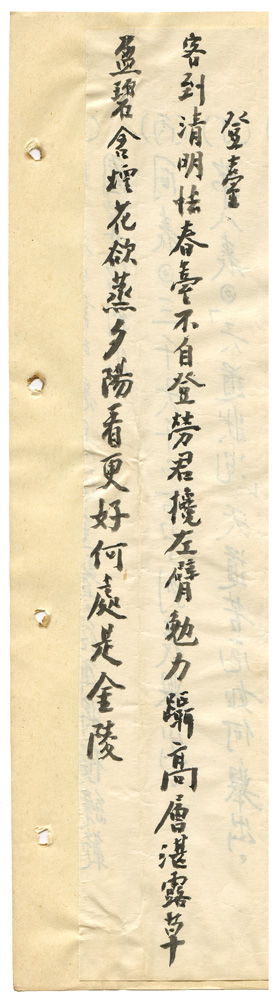 登臺
客到清明怯春臺不自登勞君攙左臂勉力躡高層湛露草
盈碧含煙花欲蒸夕陽看更好何處是金陵